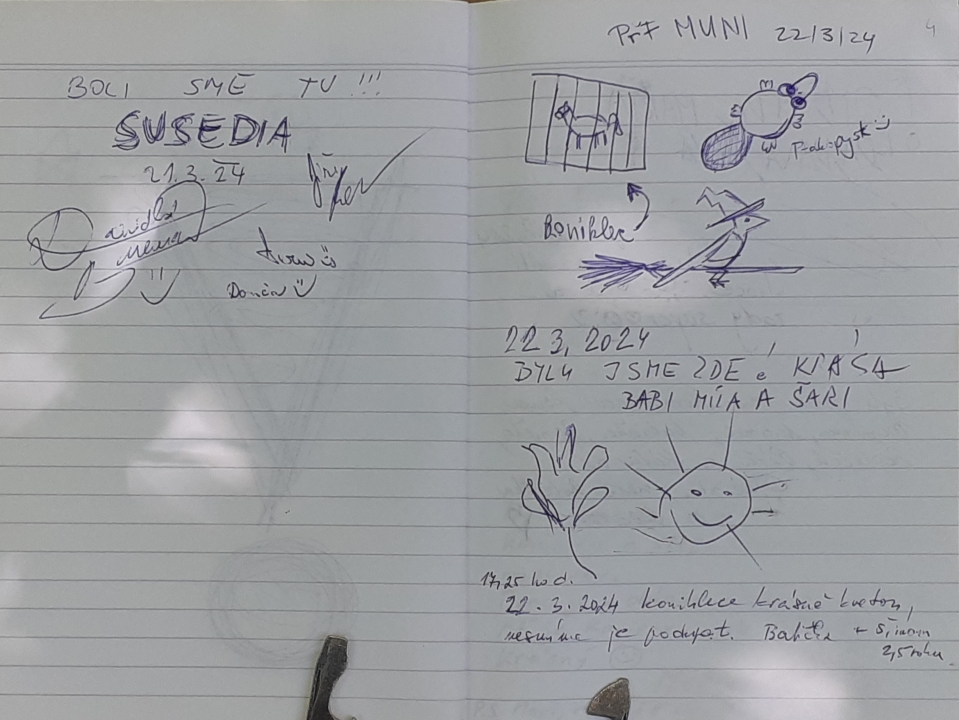 BOLI SME TU !!!
SUSEDIA
21.3.24
Jiří
Donča
4
PřF MUNI 22/3/24
Koniklec
22 3, 2024
BYLY JSME ZDE é KRÁSA
BABI MÍJA A ŠARI
17,25 hod.
22.3.2024 koniklece krásně kvetou,
nesmíme je podupat. Babička +
2,5 roku.